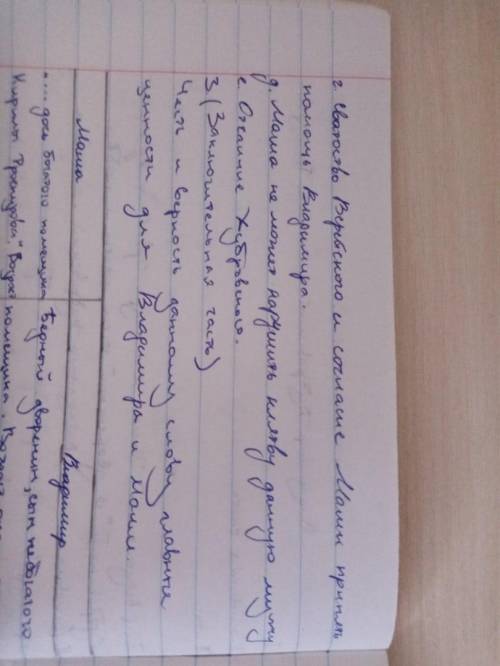 г. Сватовство Верейского и согласие Маши принять
помощь Владимира.
д. Маша не может нарушить клятву данную мужу
е. Отличие Дубровского.
3. (Заключительная часть)
Честь и верность данному слову главные
ценности для Владимира и Маши.
Маша Владимир
"...дочь богатого помещика бедный дворянин, сын небогатого
Кирилы помещика.